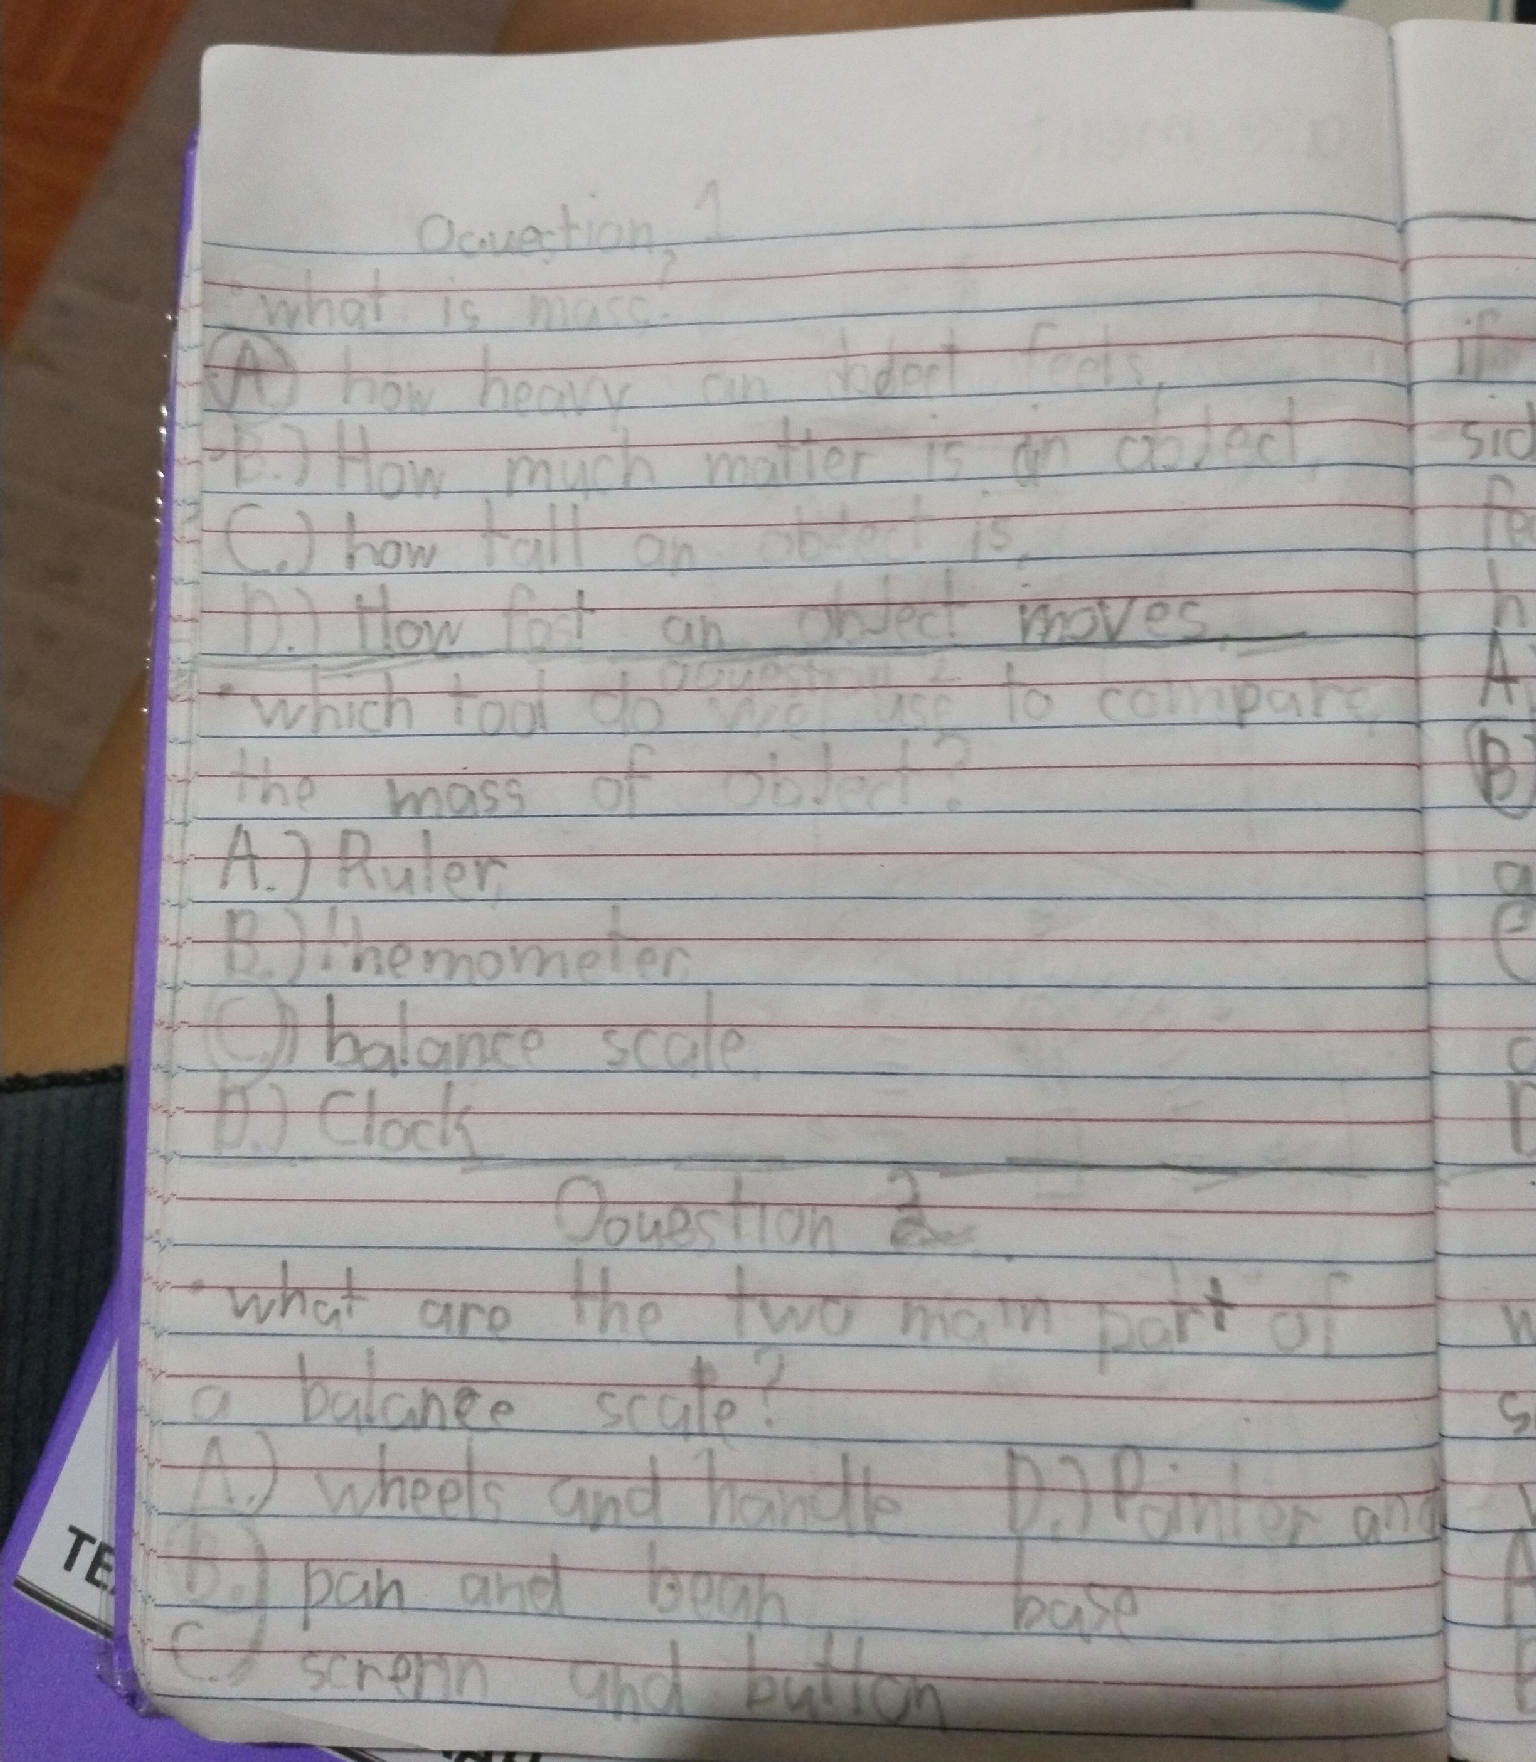 Ocuestion, 1
• what is mass?
A) how heavy an obdect feels,
B.) How much matter is in an obJect,
C.) how tall an obJect is,
D.) How fast an obJect moves.
Qouestion 2
• which tool do we use to compare
the mass of obJect?
A.) Ruler,
B.) themometer
C.) balance scale
D.) Clock
Oouestion 2
• what are the two main part of
a balance scale?
A.) wheels and handle
D.) Pointer and
B.) pan and bean
base
C.) screnn and button
if
sid
fe
h
A
B
TE